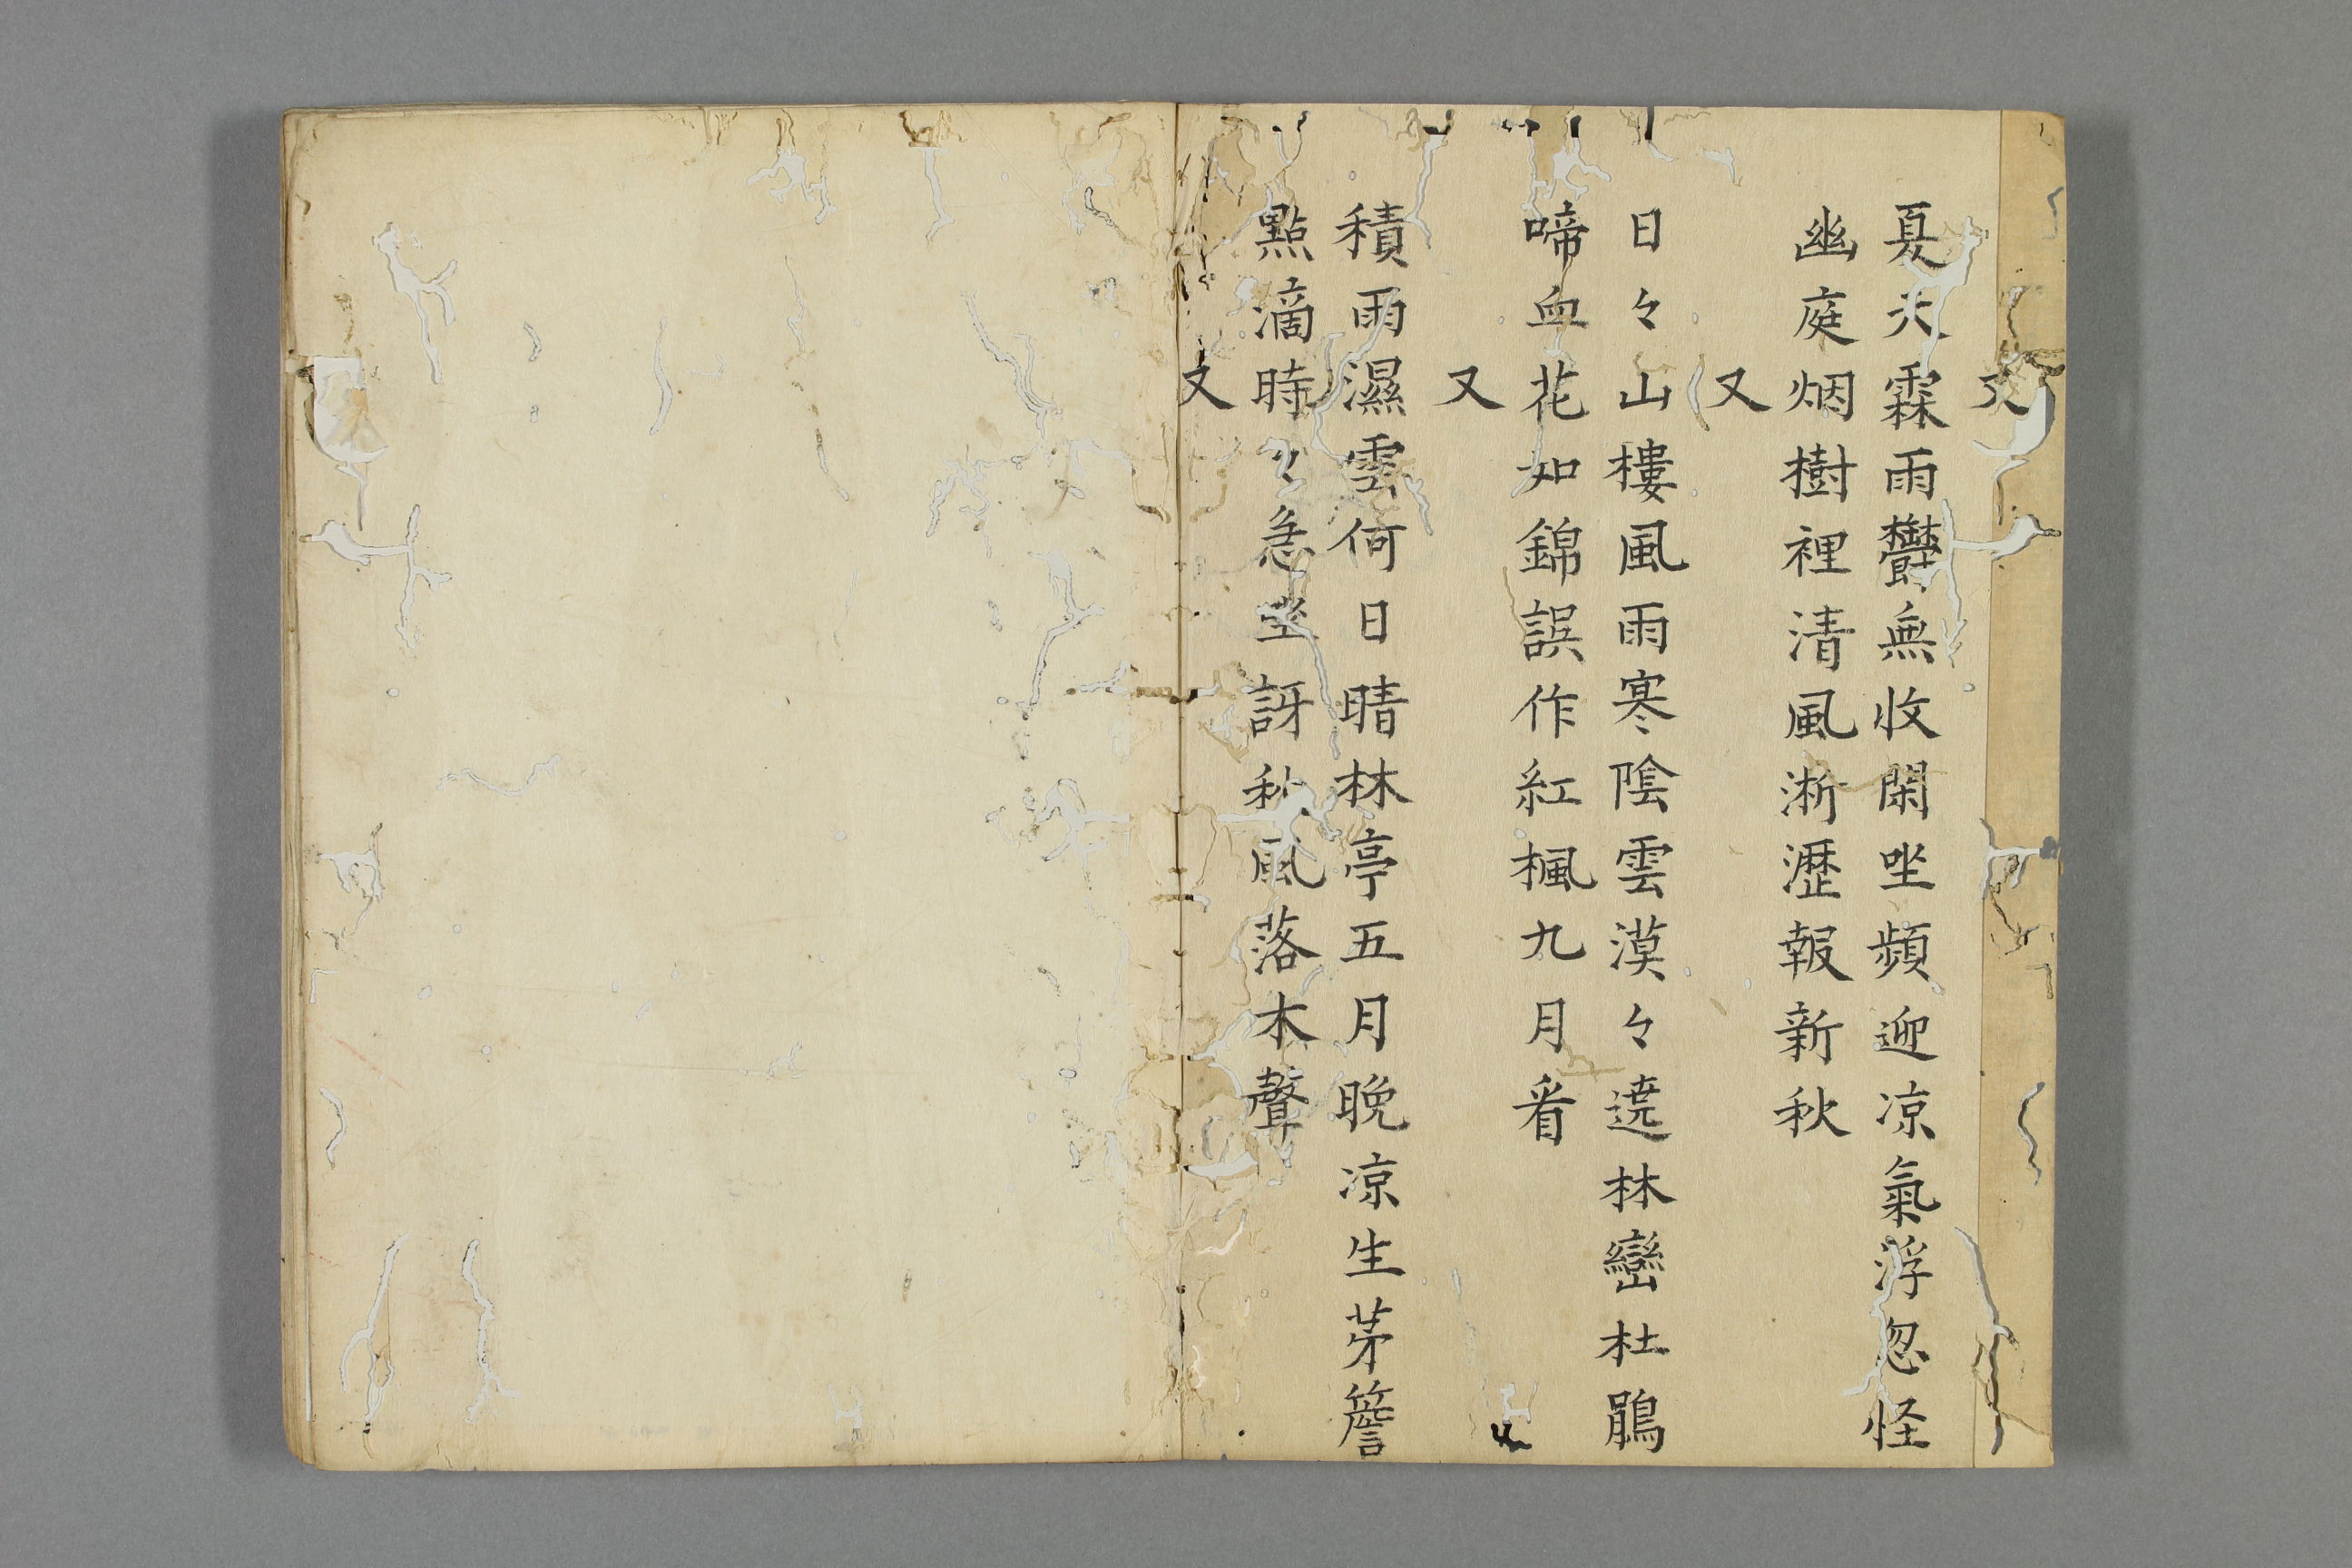 又
夏天霖雨欝無收閑坐頻迎凉氣浮忽怪
幽庭烟樹裡清風淅瀝報新秋
又
日々山樓風雨寒陰雲漠々遶林巒杜鵑
啼血花如錦誤作紅楓九月看
又
積雨濕雲何日晴林亭五月晩凉生茅簷
點滴時々急坐訝秋風落木聲
又